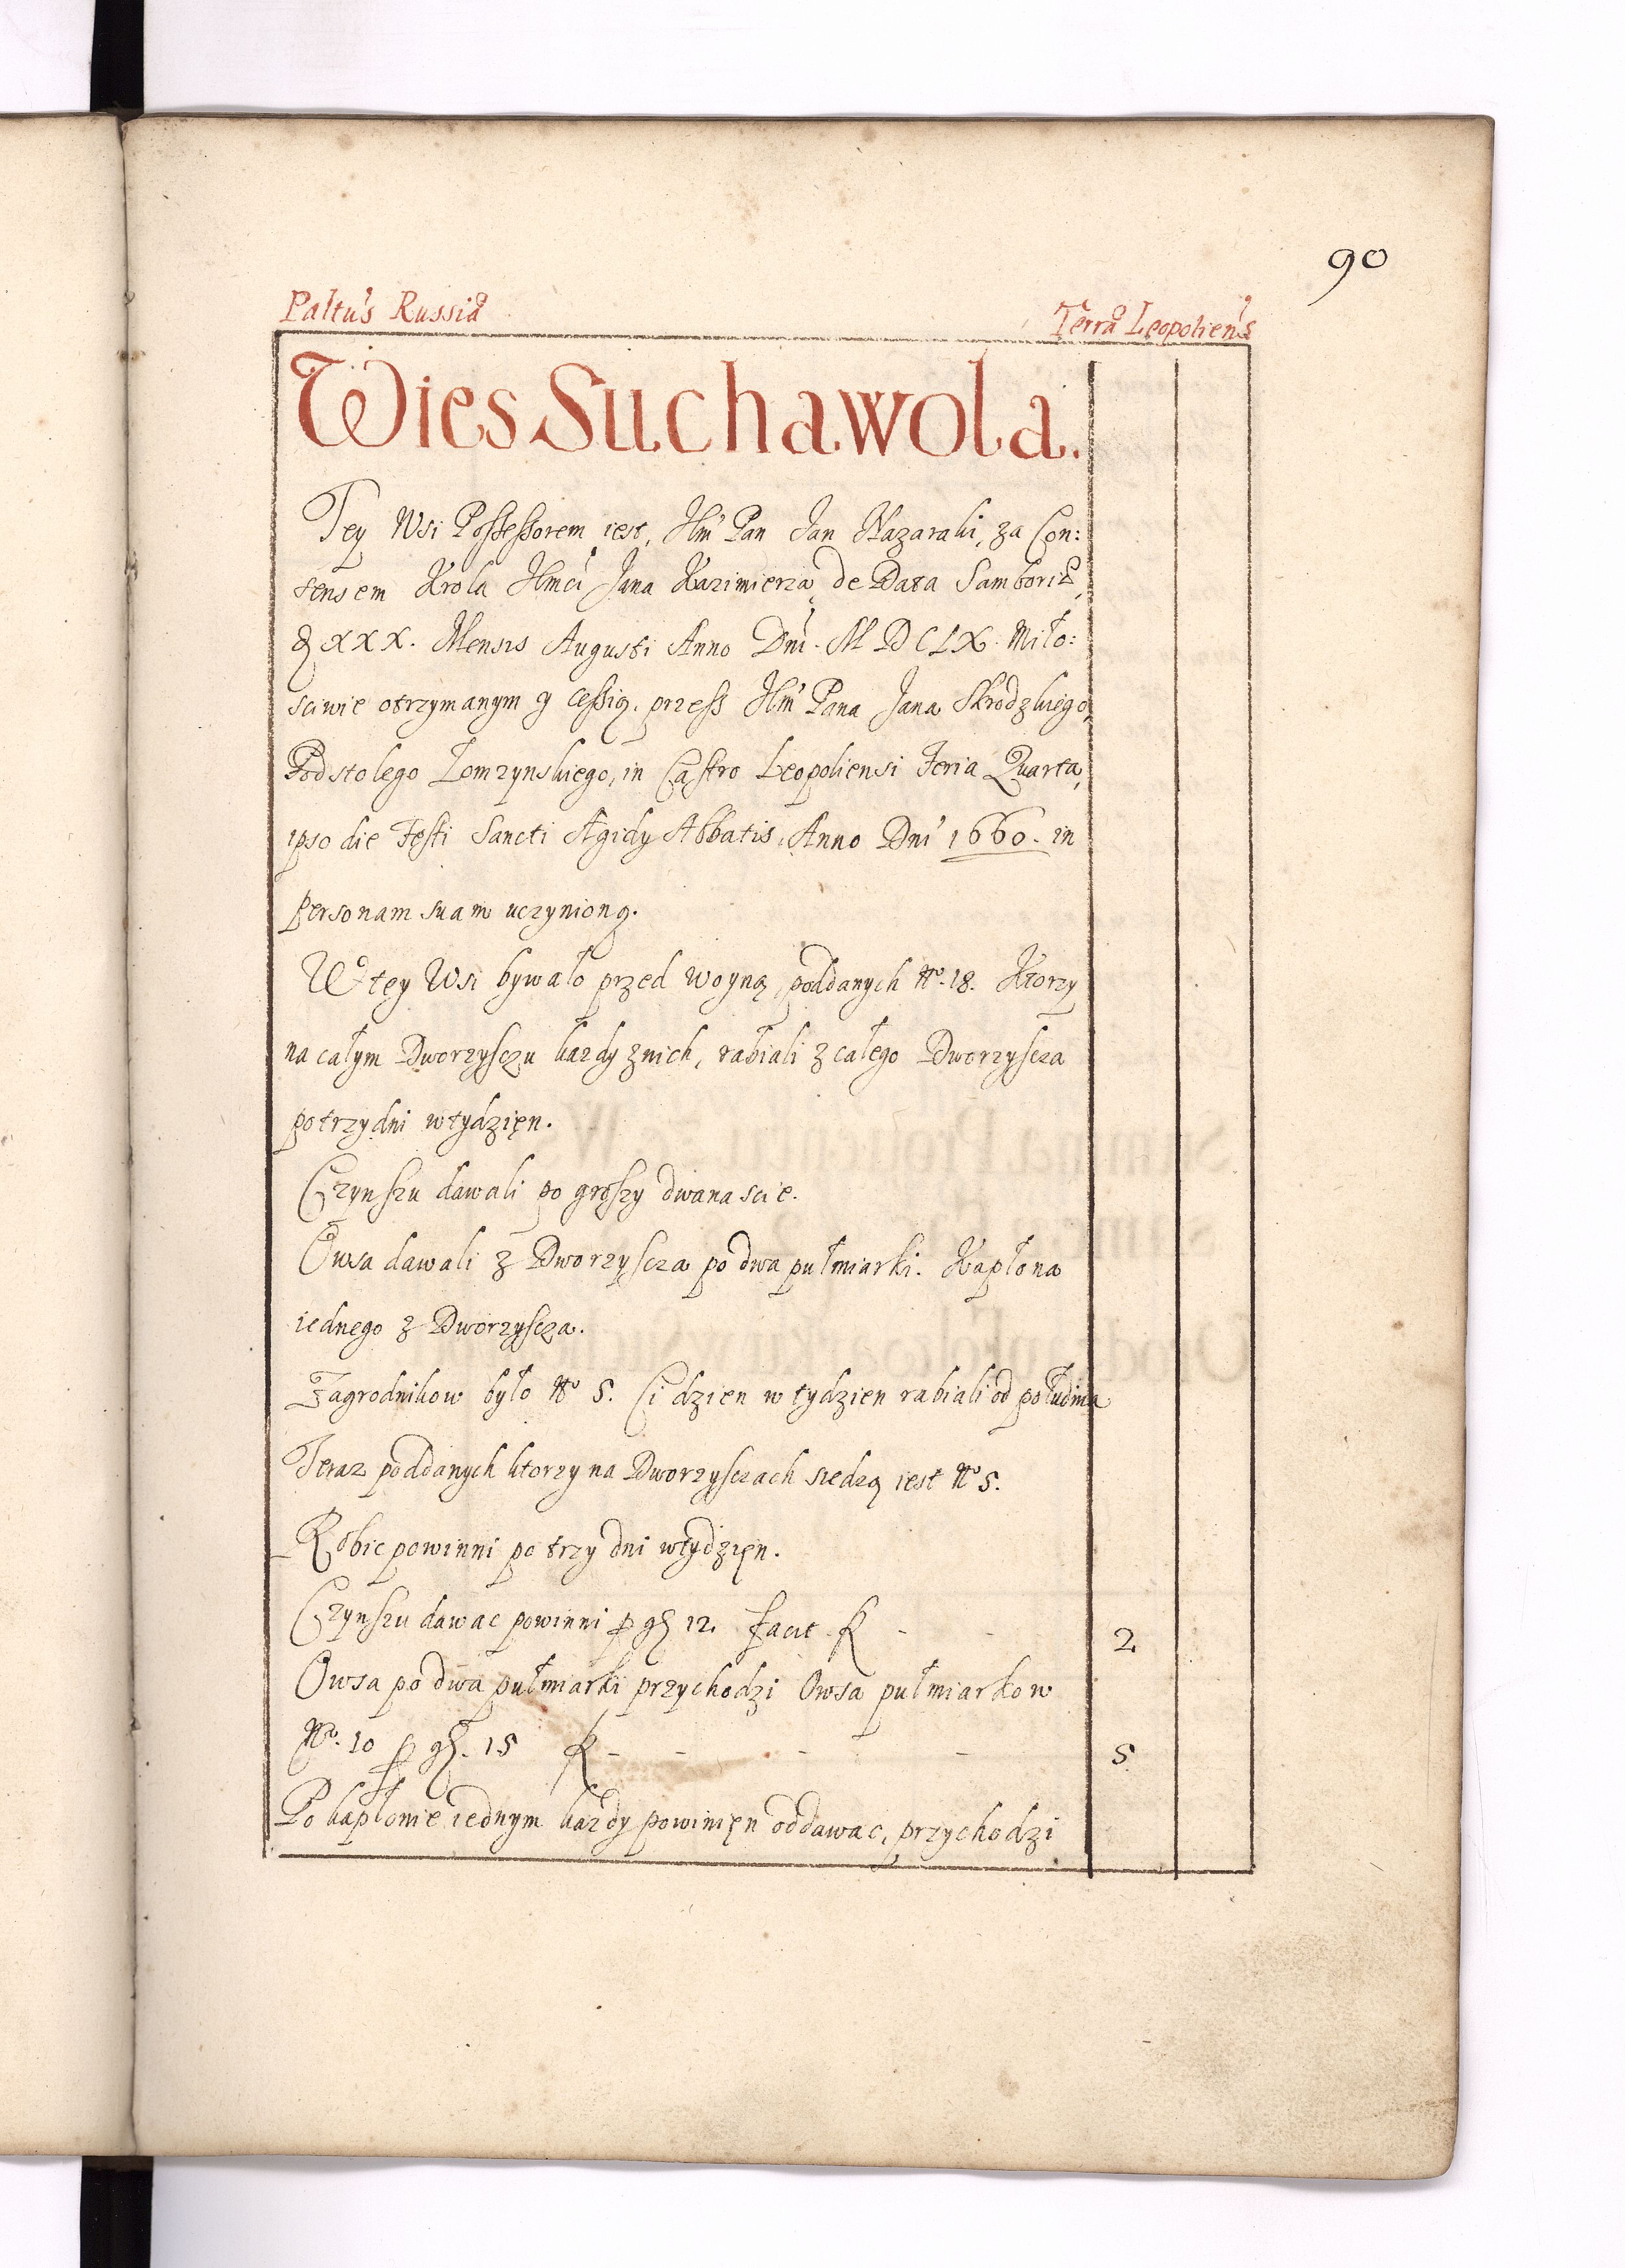 90
Paltus Russiæ Terræ Leopolien̄s
Wies Suchawola.
Tey Wsi Possessorem iest, Jḿ Pan Jan Nazaraki, za Con:
sensem Krola Jḿci Jana Kazimierza, de Data Samboriæ,
XXX. Mensis Augusti Anno Dnī. MDCLX. Miło:
sciwie otrzymanym y cessią. przess Jḿ Pana Jana Skrodzkiego,
Podstolego Łomzynskiego, in Castro Leopoliensi Feria Quarta,
ipso die Festi Sancti Ægidy Abbatis, Anno Dnī 1660. in
personam suam uczynioną.
W tey Wsi bywało przed woyną, poddanych No. 18. Ktorzy
na całym Dworzysczu kazdy z nich, rabiali z całego Dworzyscza
po trzy dni w tydzięn.
Czynszu dawali po groszy dwanascie.
Owsa dawali z Dworzyscza po dwa pułmiarki. Kapłona
iednego z Dworzyscza.
Zagrodnikow było No 5. Ci dzien w tydzien rabiali od południa
Teraz poddanych ktorzy na Dworzysczach siedzą iest No 5.
Robic powinni po trzy dni w tydzięn.
Czynszu dawac powinni ꝑ gꝭ 12. facit f - - 2
Owsa po dwa pułmiarki przychodzi Owsa pułmiarkow
No. 10 ꝑ gꝭ. 15 f - - - - 5
Po kapłonie iednym kazdy powinięn oddawac, przychodzi